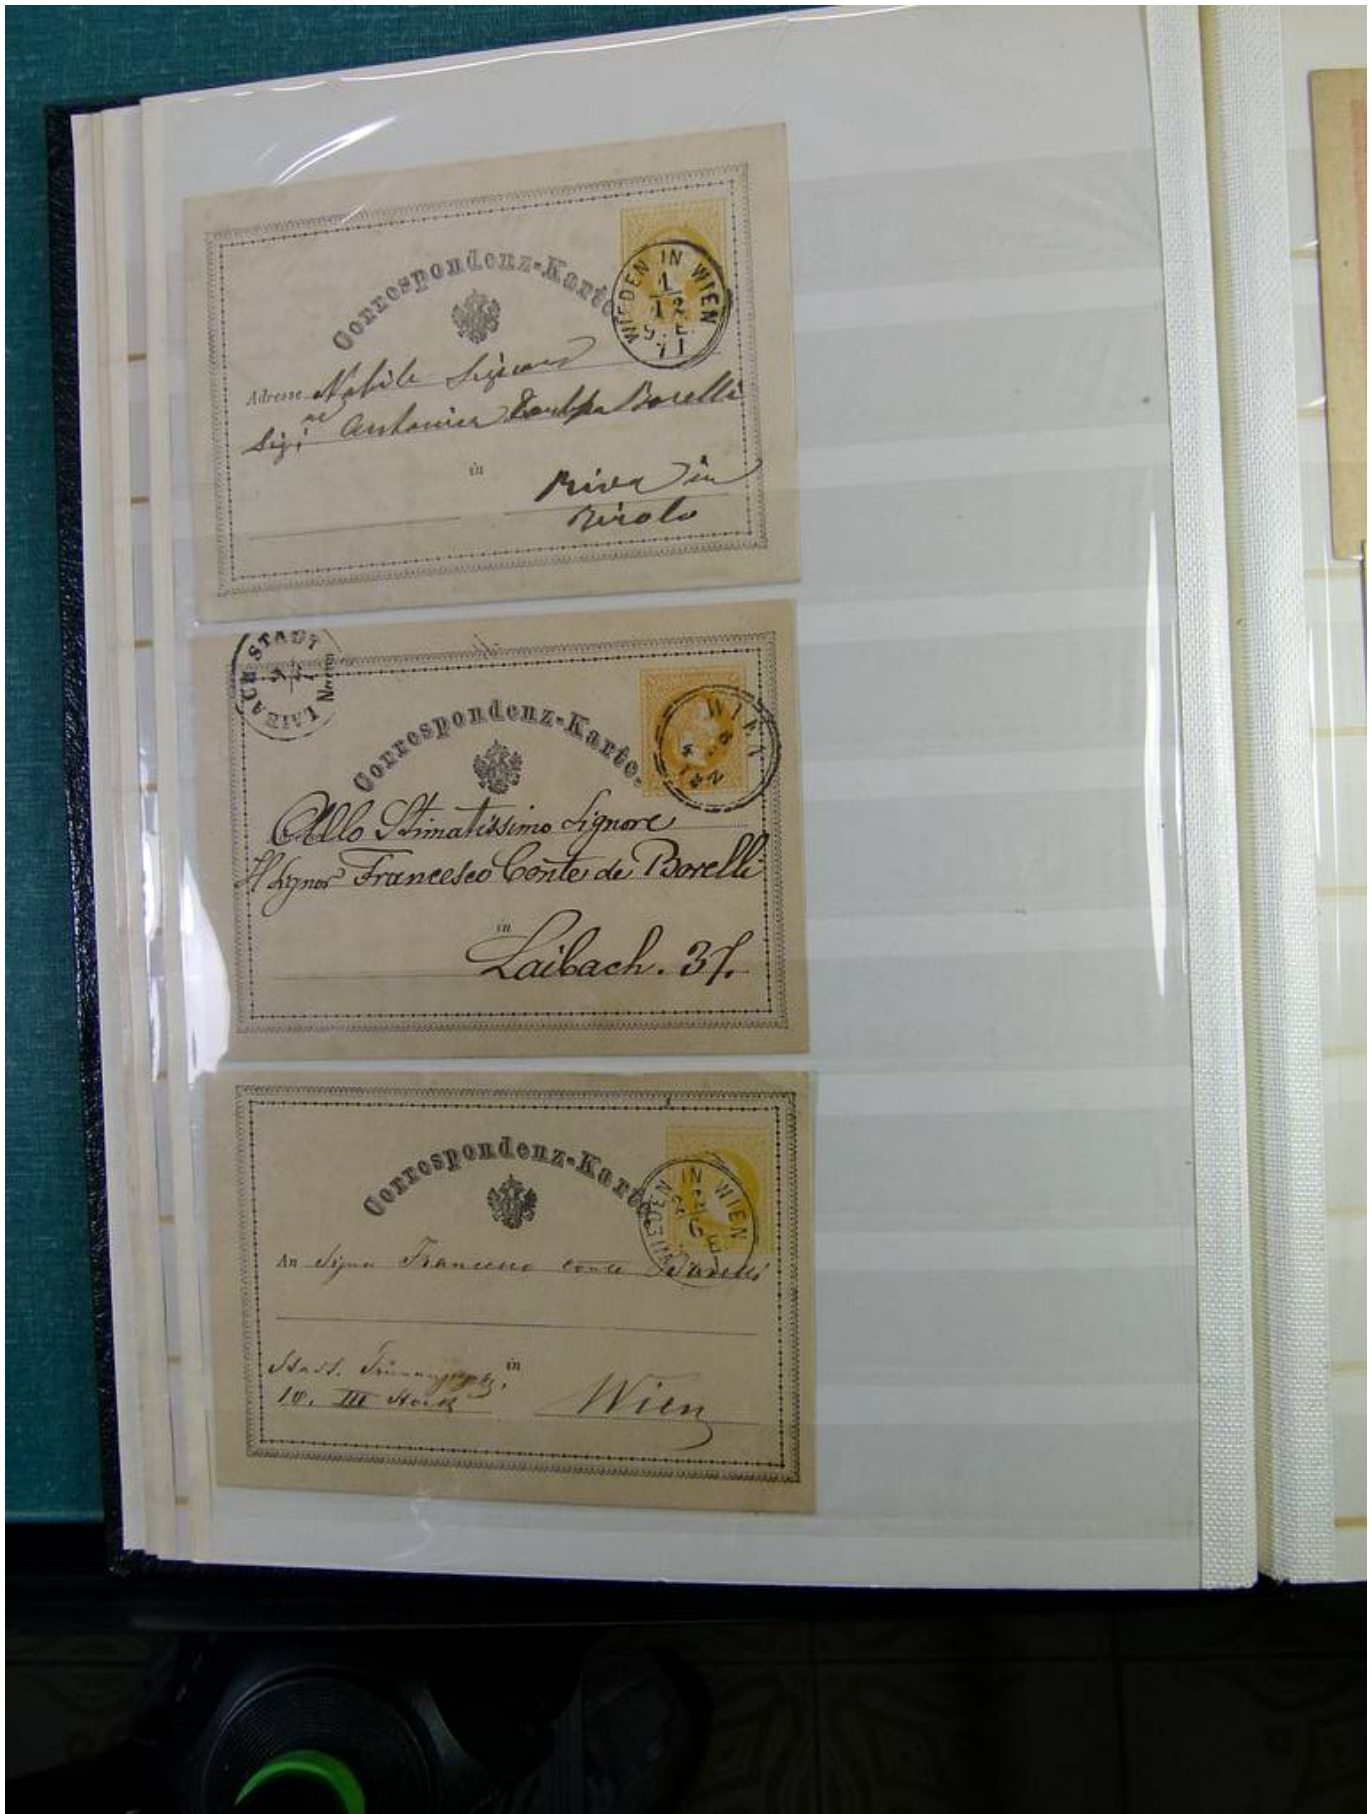 Correspondenz-Karte
WIEDEN IN WIEN
1
12
71
Adresse Nobile
Sigra Antonia Borelli
in
Riva in
Tirolo
LAIBACH STADT
Correspondenz-Karte.
WIEN
Allo Stimatissimo Signore
Il Signor Francesco Conte de Borelli
in
Laibach. 37.
Correspondenz-Karte.
WIEDEN IN WIEN
An Signor Francesco conte Borelli
Stadt.
in
18. III Stock
Wien